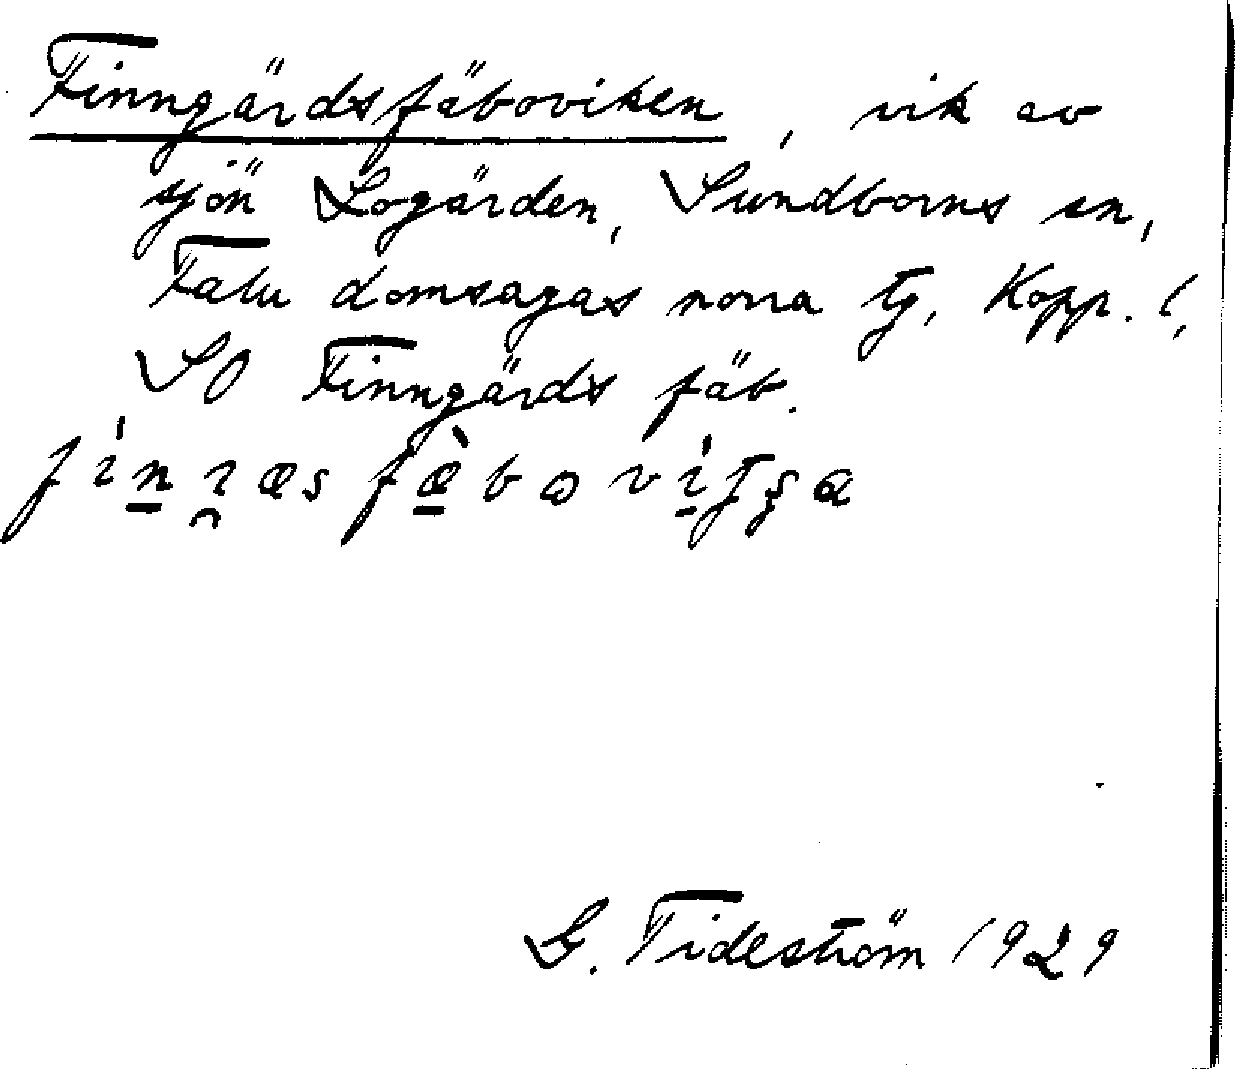 Finngärdsfäboviken, vik av
sjön Logärden, Sundborns sn,
Falu domsagas norra tg, Kopp. l,
SO Finngärds fäb.
G. Tideström 1929